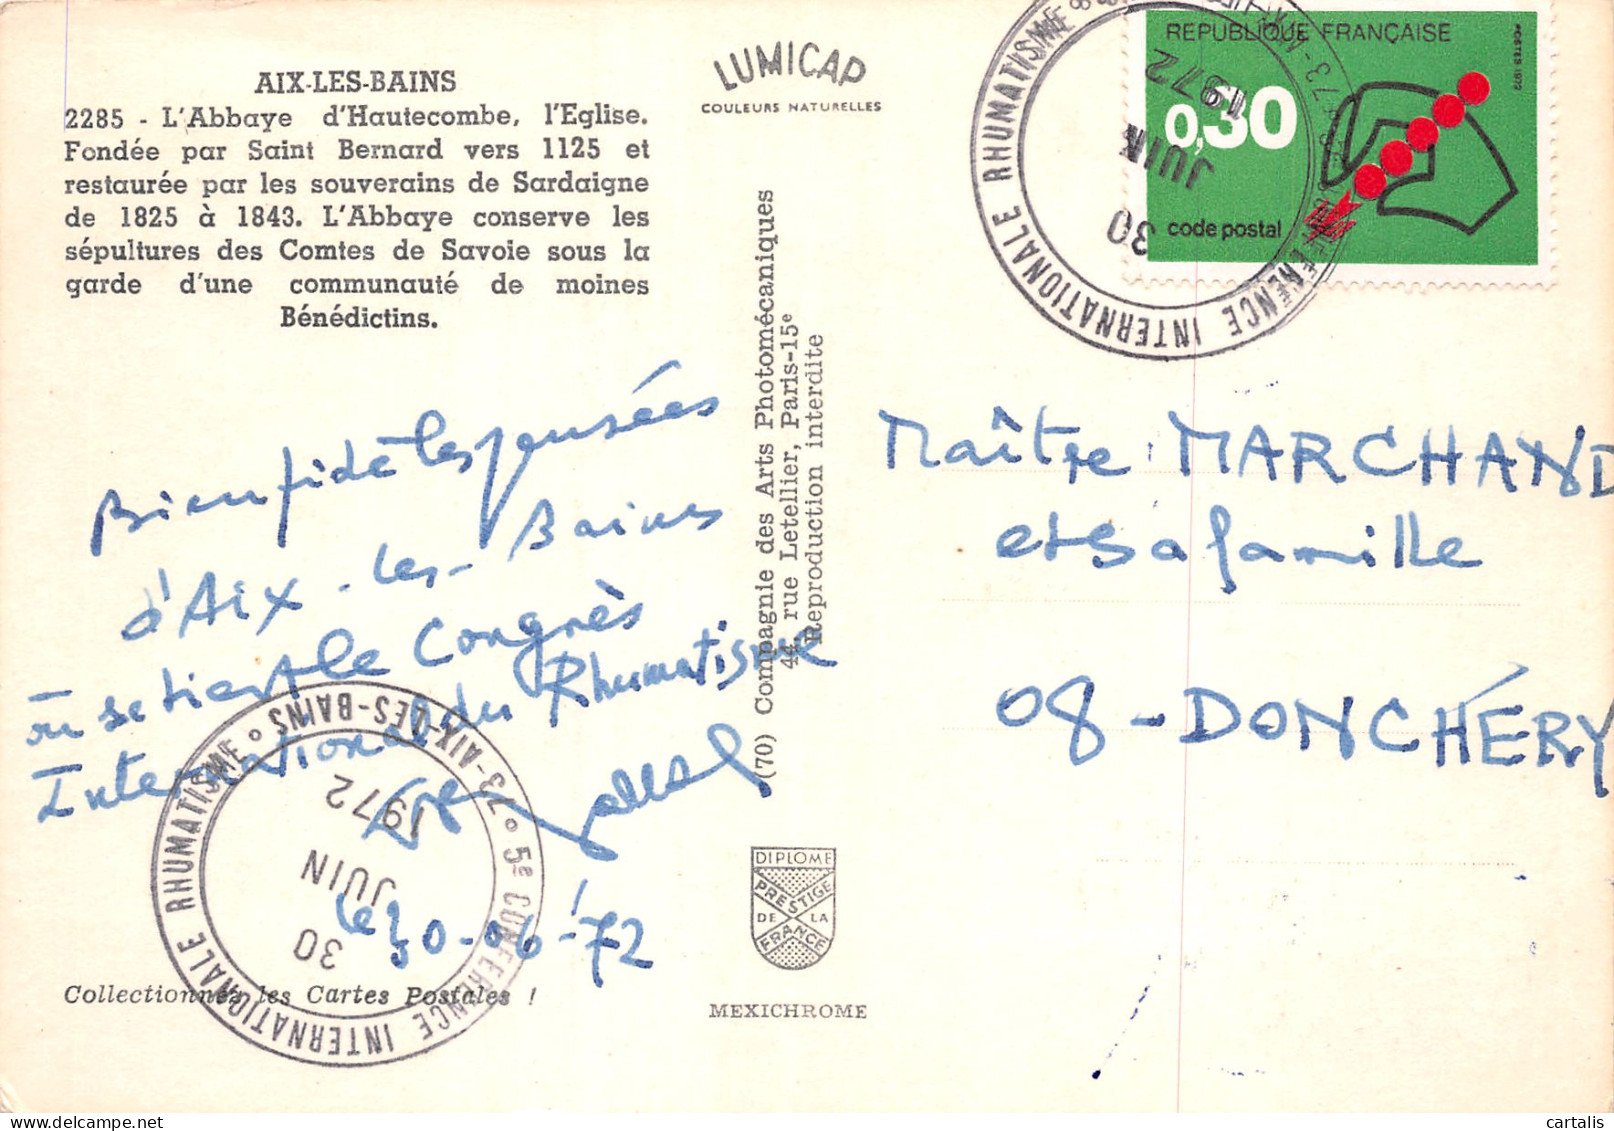 AIX-LES-BAINS
2285 - L'Abbaye d'Hautecombe, l'Eglise.
Fondée par Saint Bernard vers 1125 et
restaurée par les souverains de Sardaigne
de 1825 à 1843. L'Abbaye conserve les
sépultures des Comtes de Savoie sous la
garde d'une communauté de moines
Bénédictins.
LUMICAP
COULEURS NATURELLES
REPUBLIQUE FRANÇAISE
POSTES 1972
0,30
code postal
5e CONFERENCE INTERNATIONALE RHUMATISME
30
JUIN
1972
Bien fidèles pensées
d'Aix-les-Bains
où se tient le Congrès
International du Rhumatisme
le 30-06-72
73-AIX-LES-BAINS
5e CONFERENCE INTERNATIONALE RHUMATISME
30
JUIN
1972
Collectionnez les Cartes Postales !
(70) Compagnie des Arts Photomécaniques
44, rue Letellier, Paris-15e
Reproduction interdite
DIPLOME
PRESTIGE
DE LA
FRANCE
MEXICHROME
Maître MARCHAND
et sa famille
08-DONCHÉRY
cartalis